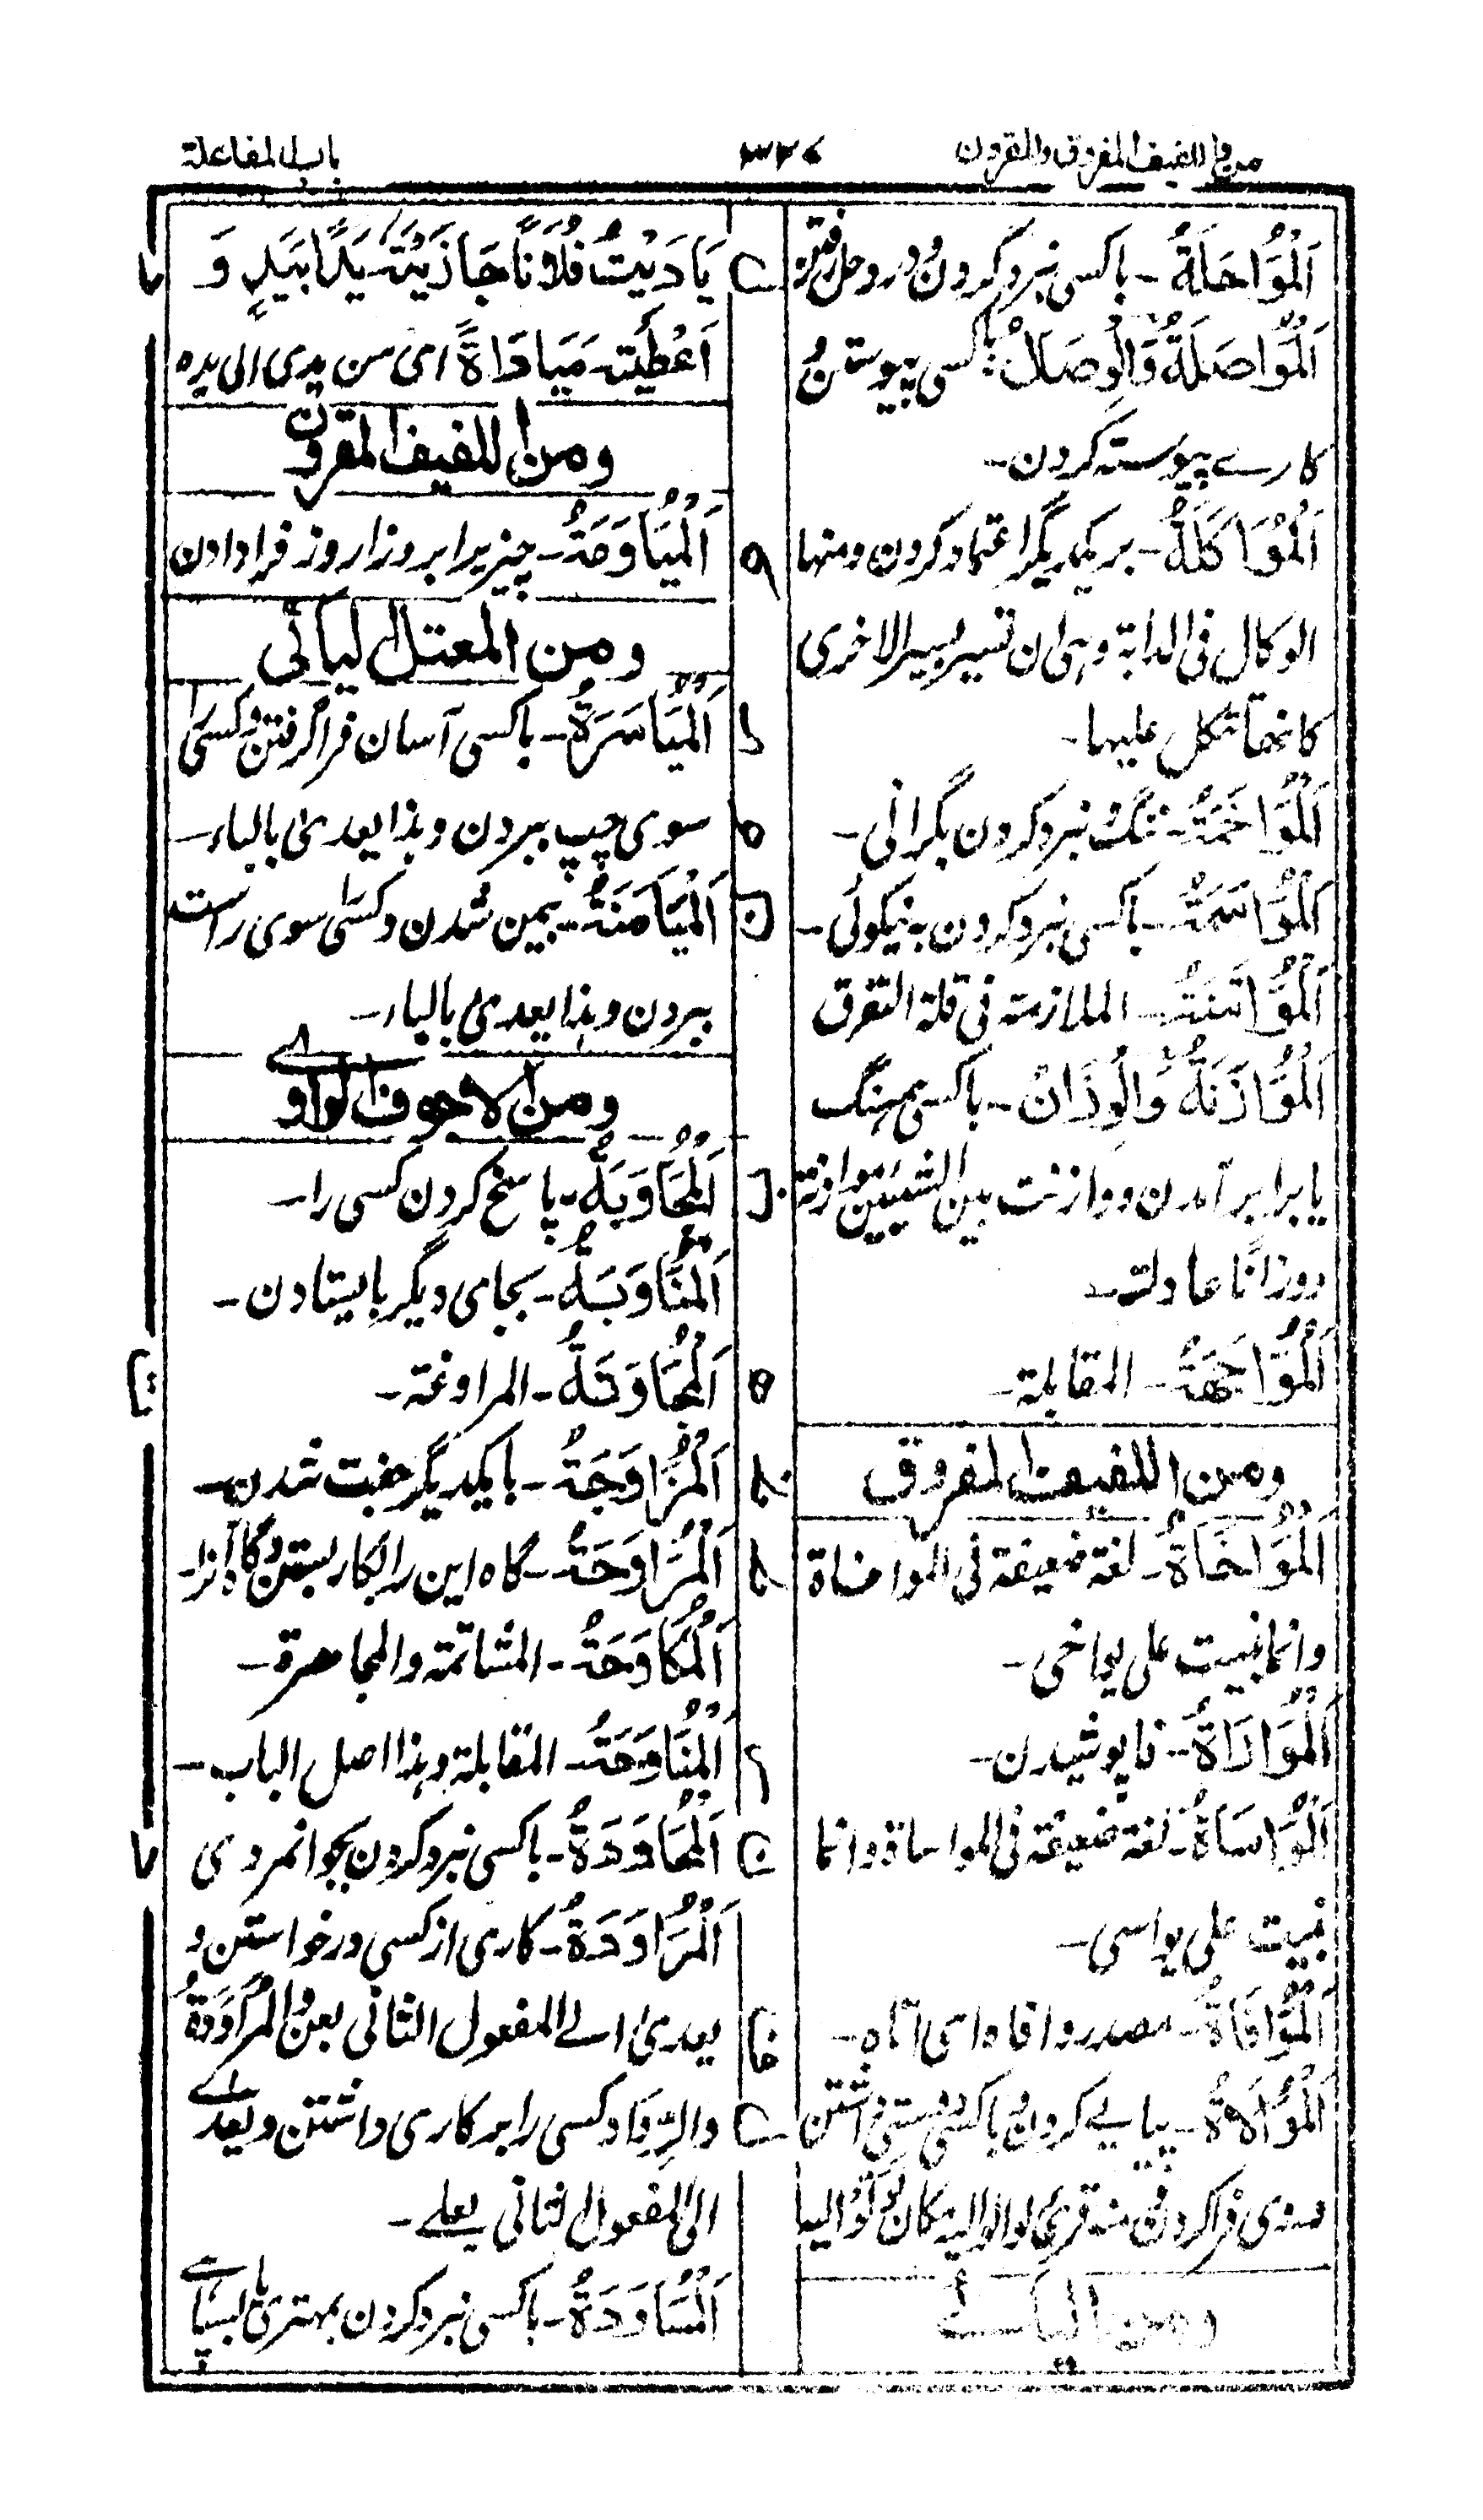 اللفيف المفروق والمقرون
باب المفاعلة
اَلْمُوَاحَلَةُ - باکسی نبرد کردن در وحل رفتن
اَلْمُوَاصَلَةُ وَالْوِصَالُ باکسی پیوستن و
کارے پیوسته کردن -
اَلْمُوَاكَلَةُ - بر یکدیگر اعتماد کردن ومنها
الوکال فی الدابة وہی ان تسیر بسیر الاخری
کانها تتکل علیها -
اَلْمُوَاخَمَةُ - نبرد کردن بگرانی -
اَلْمُوَاسَمَةُ - باکسی نبرد کردن به نیکوئی -
اَلْمُوَاتَنَةُ - الملازمة فی قلة التفرق
اَلْمُوَازَنَةُ وَالْوِزَانُ - باکسی همسنگ
یا برابر آمدن ووازنت بین الشیئین موازنة
ووزانًا عادلت -
اَلْمُوَاجَهَةُ - المقابلة -
ومن اللفيف المفروق
اَلْمُوَاخَاةُ - لغة ضعیفة فی المواخاة
وانما بنیت علی یواخی -
اَلْمُوَارَاةُ - فا پوشیدن -
اَلْمُوَاسَاةُ - لغة ضعیفة فی المواساة وانما
بنیت علی یواسی -
اَلْمُوَافَاةُ - مصدر وافاه ای اتاه -
اَلْمُوَالَاةُ - پیاپے کردن و باکسی دوستی داشتن
ومن الیائے
يَادَيْتُ فُلَانًا جَازَيْتُهُ يَدًا بِيَدٍ وَ
اَعْطَيْتُهُ مُيَادَاةً ای من یدی الی یده
ومن اللفيف المقرون
اَلْمُيَاوَمَةُ - چیزیرا بروز اروز فرا دادن
ومن المعتل اليائی
اَلْمُيَاسَرَةُ - باکسی آسان فرا گرفتن و کسی را
سوی چپ ببردن وہذا یعدی بالباء -
اَلْمُيَامَنَةُ - بیمن شدن و کسی سوی راست
ببردن وہذا یعدی بالباء -
ومن الاجوف الواوے
اَلْمُجَاوَبَةُ - پاسخ کردن کسی را -
اَلْمُنَاوَبَةُ - بجای دیگر بایستادن -
اَلْمُحَاوَتَةُ - المراوغة -
اَلْمُزَاوَجَةُ - با یکدیگر جفت شدن -
اَلْمُرَاوَحَةُ - گاه این را بکار بستن و گاه آنرا -
اَلْمُكَاوَحَةُ - المشاتمة والمجاهرة -
اَلْمُنَاوَحَةُ - المقابلة وہذا اصل الباب -
اَلْمُجَاوَدَةُ - باکسی نبرد کردن بجوانمردی
اَلْمُرَاوَدَةُ - کاری از کسی درخواستن و
یعدی الے المفعول الثانی بعن و المُرَاوَدَةُ
والرِّوَاد کسی را بر کاری داشتن ویعدے
الی المفعول الثانی بعلے -
اَلْمُسَاوَدَةُ - باکسی نبرد کردن بمهتری